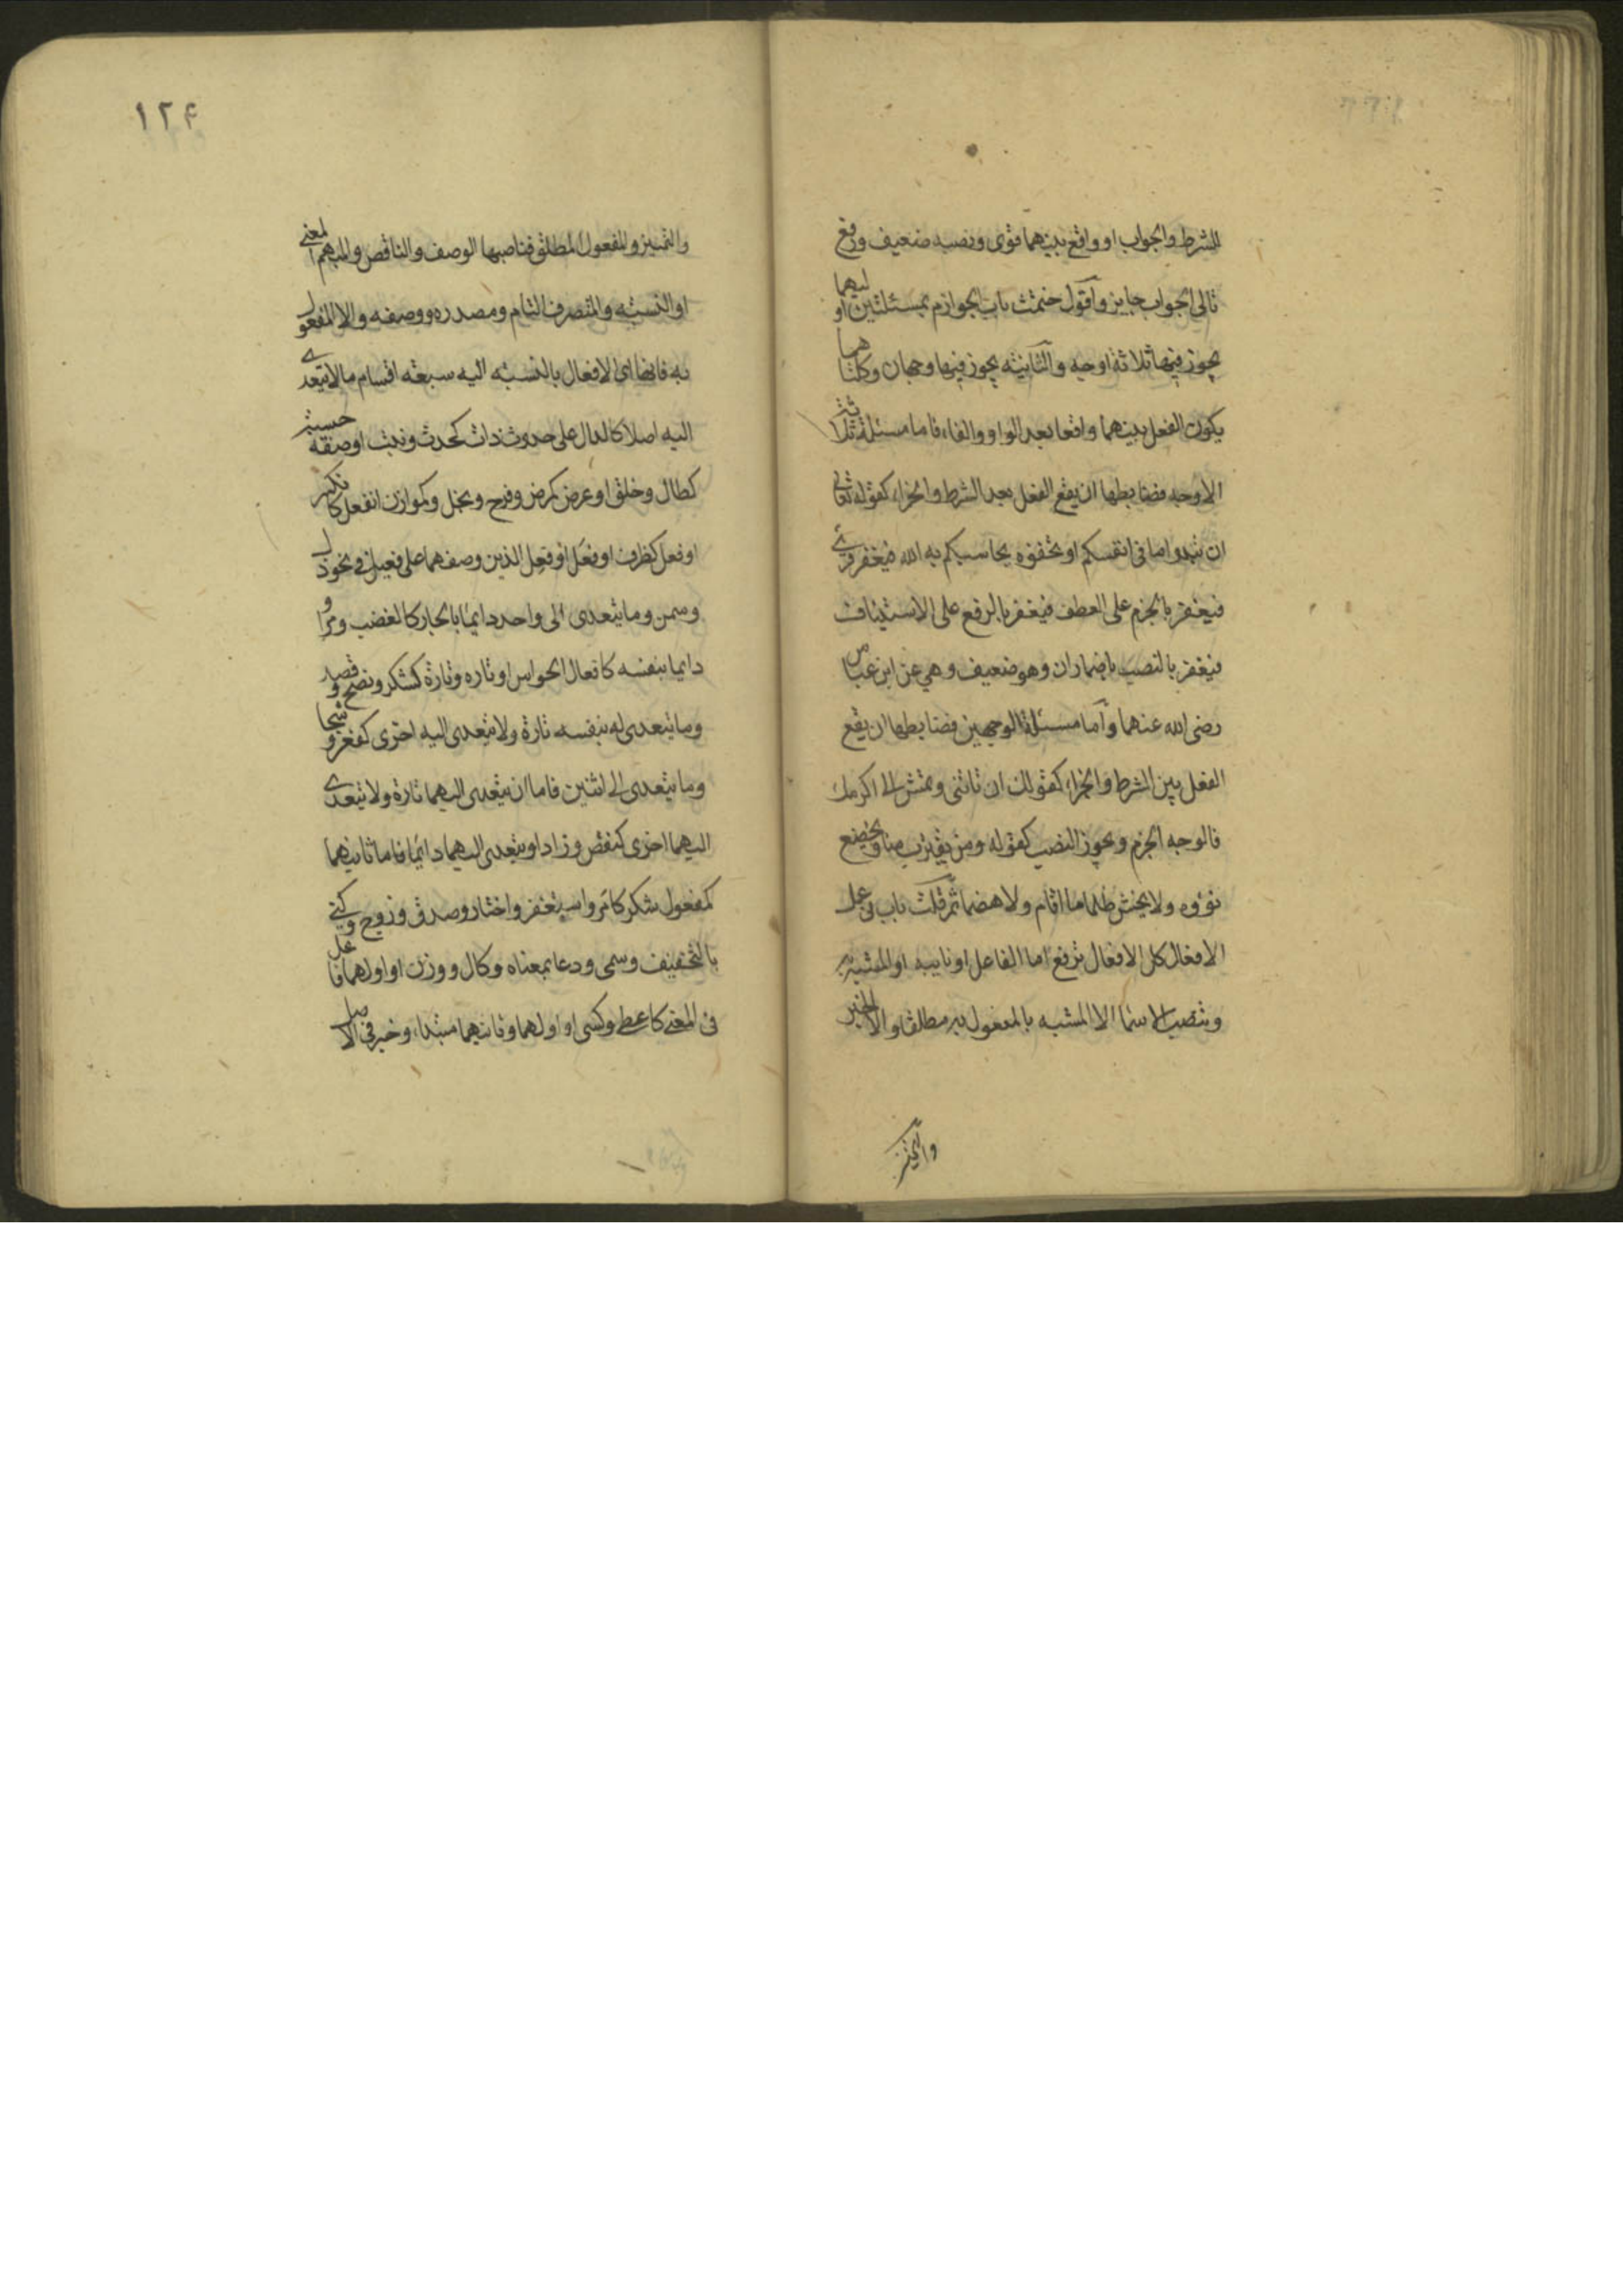 للشرط والجواب او واقع بينهما قوى ونصبه ضعيف ورفع
تالي الجواب جايز واقول ختمت باب الجوازم بمسئلتين اوليهما
يجوز فيها ثلاثة اوجه والثانية يجوز فيها وجهان وكلتاهما
يكون الفعل بينهما واقعا بعد الواو والفاء فاما مسئلة ثلاثة
الاوجه فضابطها ان يقع الفعل بعد الشرط والجزاء كقوله تعالى
ان تبدوا ما فى انفسكم او تخفوه يحاسبكم به الله فيغفر قرئ
فيغفر بالجزم على العطف فيغفر بالرفع على الاستيناف
فيغفر بالنصب باضمار ان وهو ضعيف وهي عن ابن عباس
رضى الله عنهما واما مسئلة الوجهين فضابطها ان يقع
الفعل بين الشرط والجزاء كقولك ان تاتنى وتمش الى اكرمك
فالوجه الجزم ويجوز النصب كقوله ومن يقترب منا ويخضع
نؤوه ولا يخش ظلما ما اقام ولا هضما ثم قلت باب فى عمل
الافعال كل الافعال ترفع اما الفاعل او نايبه او المشبه به
وتنصب الاسما الا المشبه بالمفعول به مطلقا والا الخبر
والتميز
١٢٤
والتميز والمفعول المطلق فناصبها الوصف والناقص والمبهم المعنى
او النسبة والمتصرف التام ومصدره ووصفه والا المفعول
به فانها اى الافعال بالنسبة اليه سبعة اقسام ما لا يتعدى
اليه اصلا كالدال على حدوث ذات كحدث ونبت او صفة حسية
كطال وخلق او عرض كمرض وفرح وبخل وكموازن انفعل كانكسر
او فعل كظرف او فعَل او فعِل الذين وصفهما على فعيل فى نحو ذل
وسمن وما يتعدى الى واحد دايما بالجار كالغضب ومر او
دايما بنفسه كافعال الحواس او تاره وتارة كشكر ونصح وقصد
وما يتعدى له بنفسه تارة ولا يتعدى اليه اخرى كفغر وشحا
وما يتعدى الى اثنين فاما ان يتعدى اليهما تارة ولا يتعدى
اليهما اخرى كنقص وزاد او يتعدى اليهما دائما فاما ثانيهما
كمفعول شكر كامر واستغفر واختار وصدق وزوج وكنى
بالتخفيف وسمى ودعا بمعناه وكال ووزن او اولهما فاعل
فى المعنى كاعطى وكسى او اولهما وثانيهما مبتداء وخبر فى الاصل